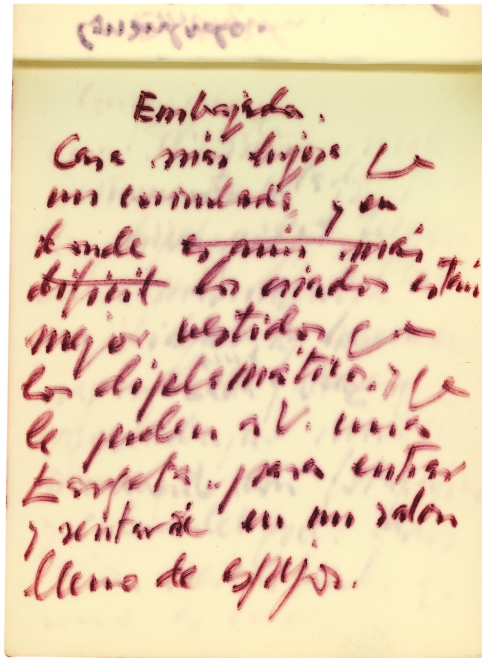 Embajada.
Casa más lujosa qe
un consulado, y en
donde es aún más
dificil los criados están
mejor vestidos qe
los diplomáticos, y qe
le piden a V. una
targeta para entrar
y sentarse en un salon
lleno de espejos.